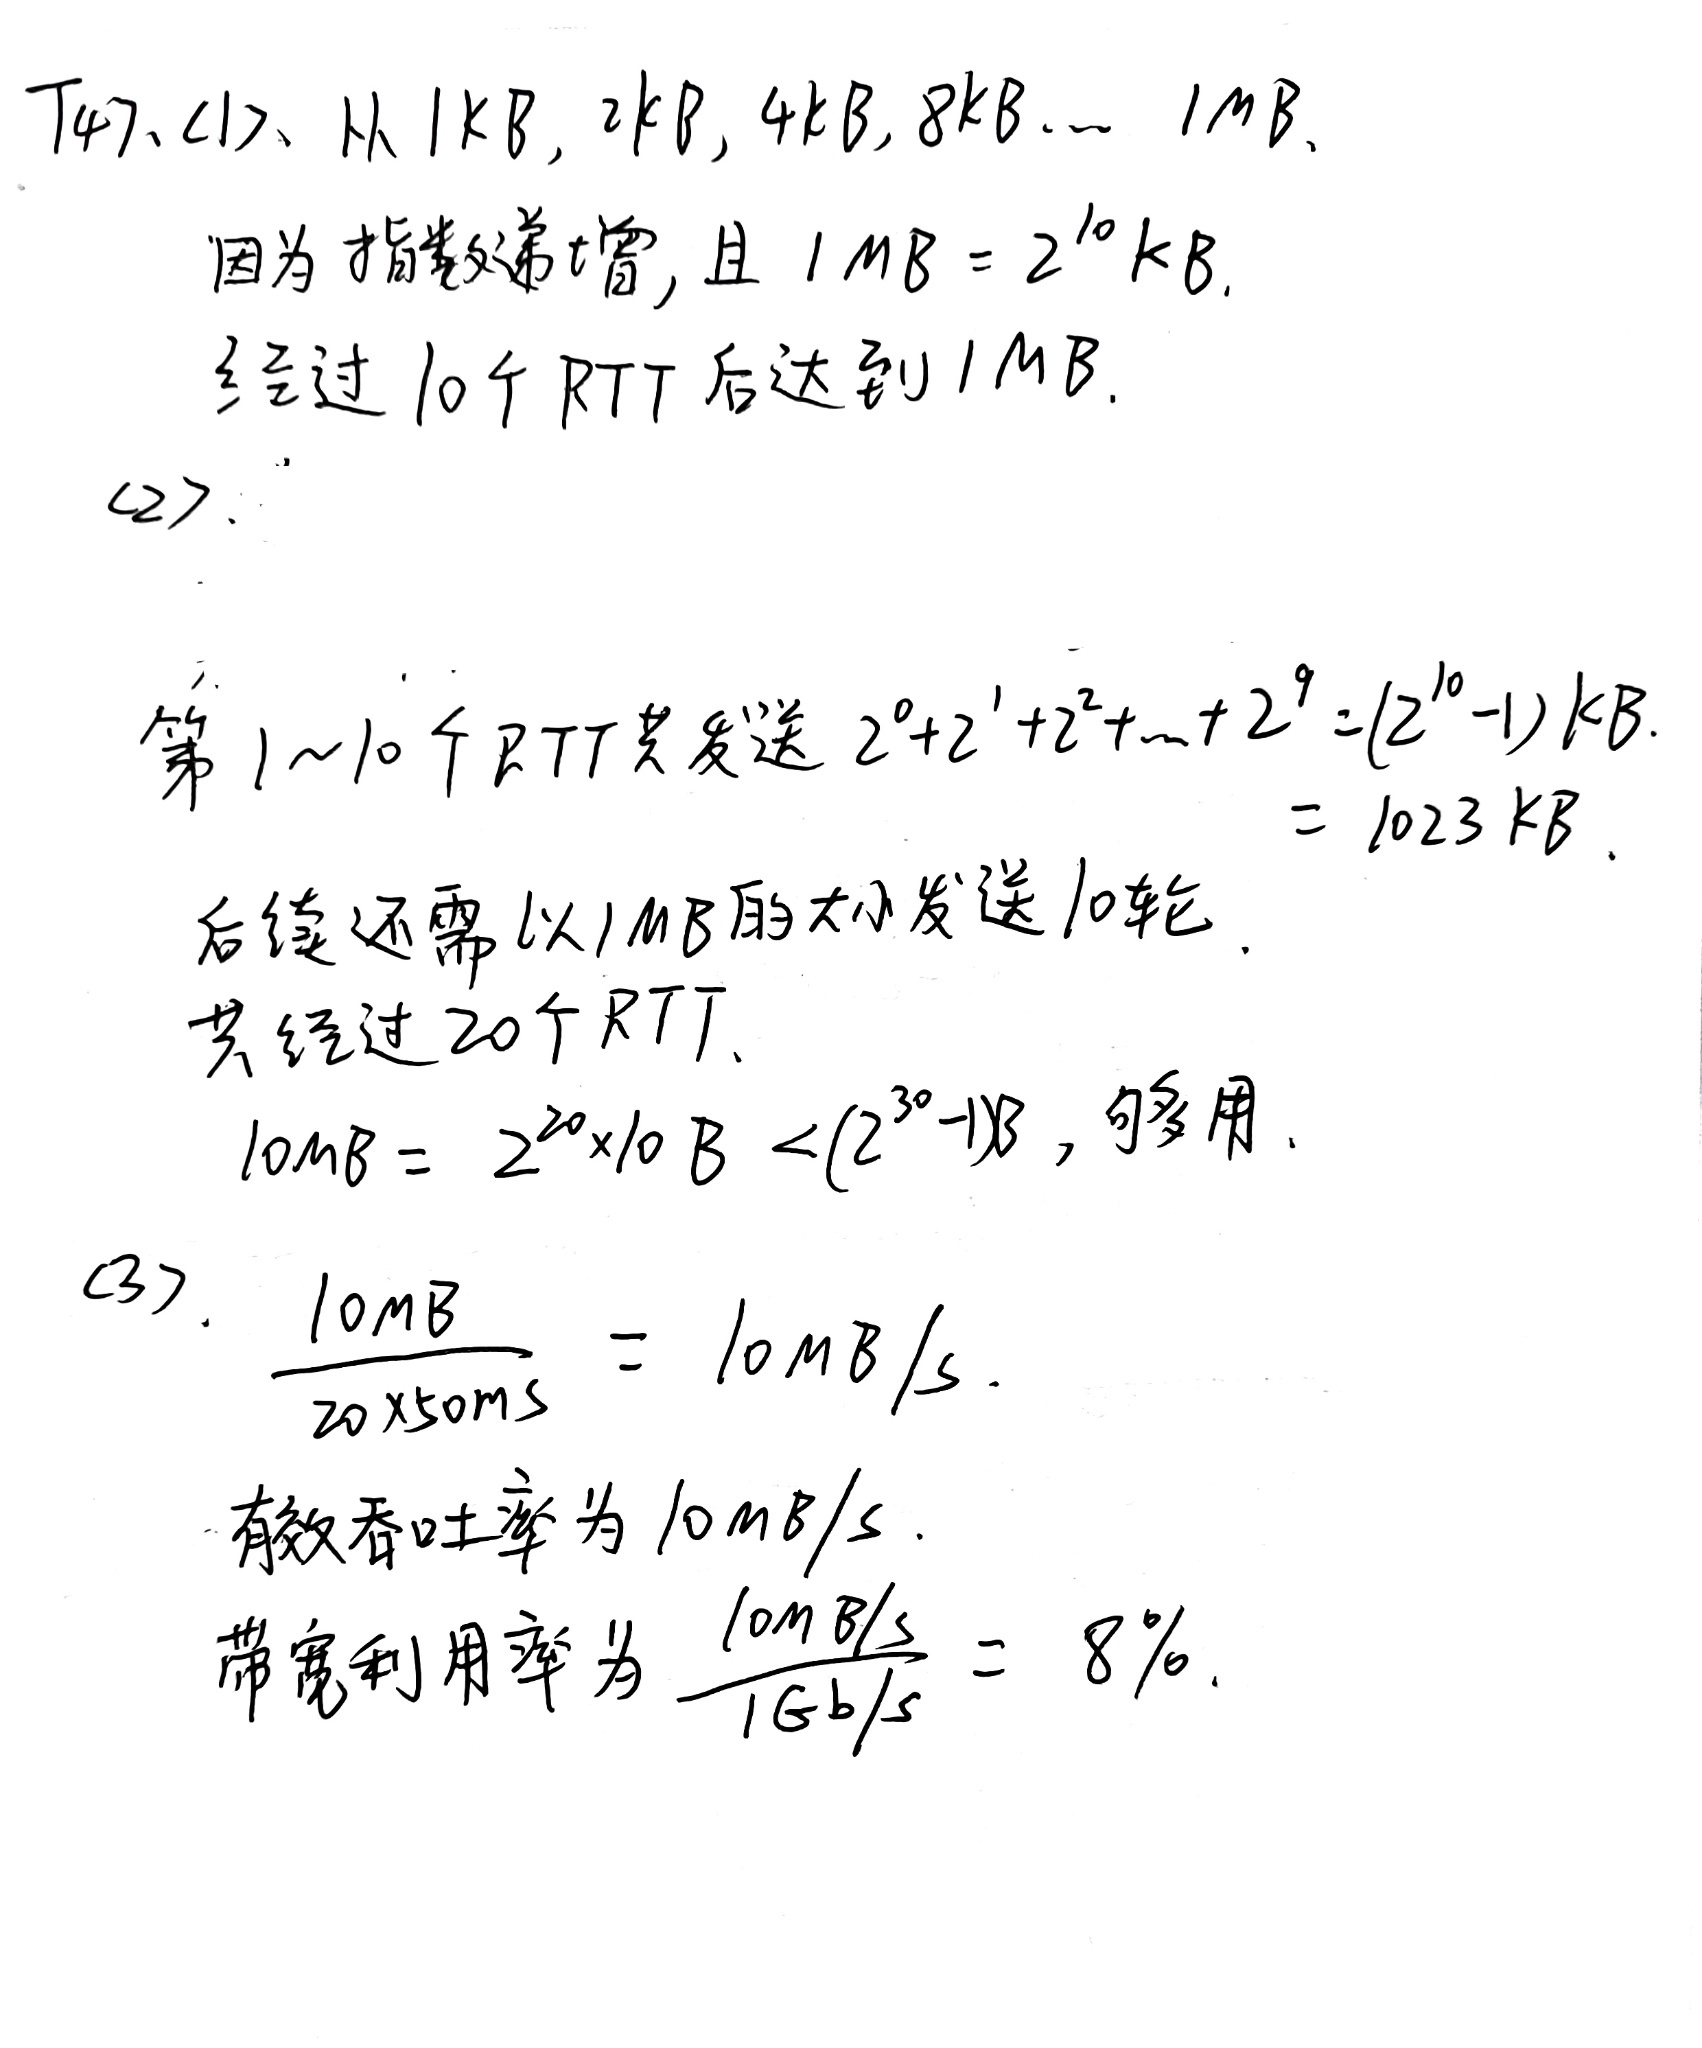 T47、<1>、从1KB, 2KB, 4KB, 8KB… 1MB.
因为指数递增, 且 1MB = 2^10 KB.
经过10个RTT后达到1MB.
<2>.
第1~10个RTT共发送 2^0+2^1+2^2+…+2^9 = (2^10-1)KB.
= 1023KB.
后续还需以1MB的大小发送10轮.
共经过20个RTT、
10MB = 2^20×10B <(2^30-1)B, 够用.
<3>. 10MB/20×50ms = 10MB/s.
有效吞吐率为10MB/s.
带宽利用率为 10MB/s/1Gb/s = 8%.